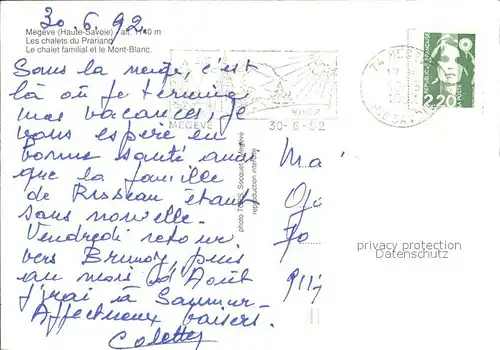 30.6.92.
Megève (Haute-Savoie) - alt. 1140 m
Les chalets du Prariand
Le chalet familial et le Mont-Blanc.
Sous la neige, c'est
là où je termine
mes vacances, je
vous espère en
bonne santé ainsi
que la famille
de Rousseau étant
sans nouvelle.
Vendredi retour
vers Brunoy, puis
au mois d'Août
j'irai à Saumur.
Affectueux baisers.
Colette
MEGEVE
30-6-92
74 MEGEVE
HTE SAVOIE
REPUBLIQUE FRANÇAISE
2,20
LA POSTE
photo TOPS, Socquet, Megève
reproduction interdite
Ma
917
privacy protection
Datenschutz